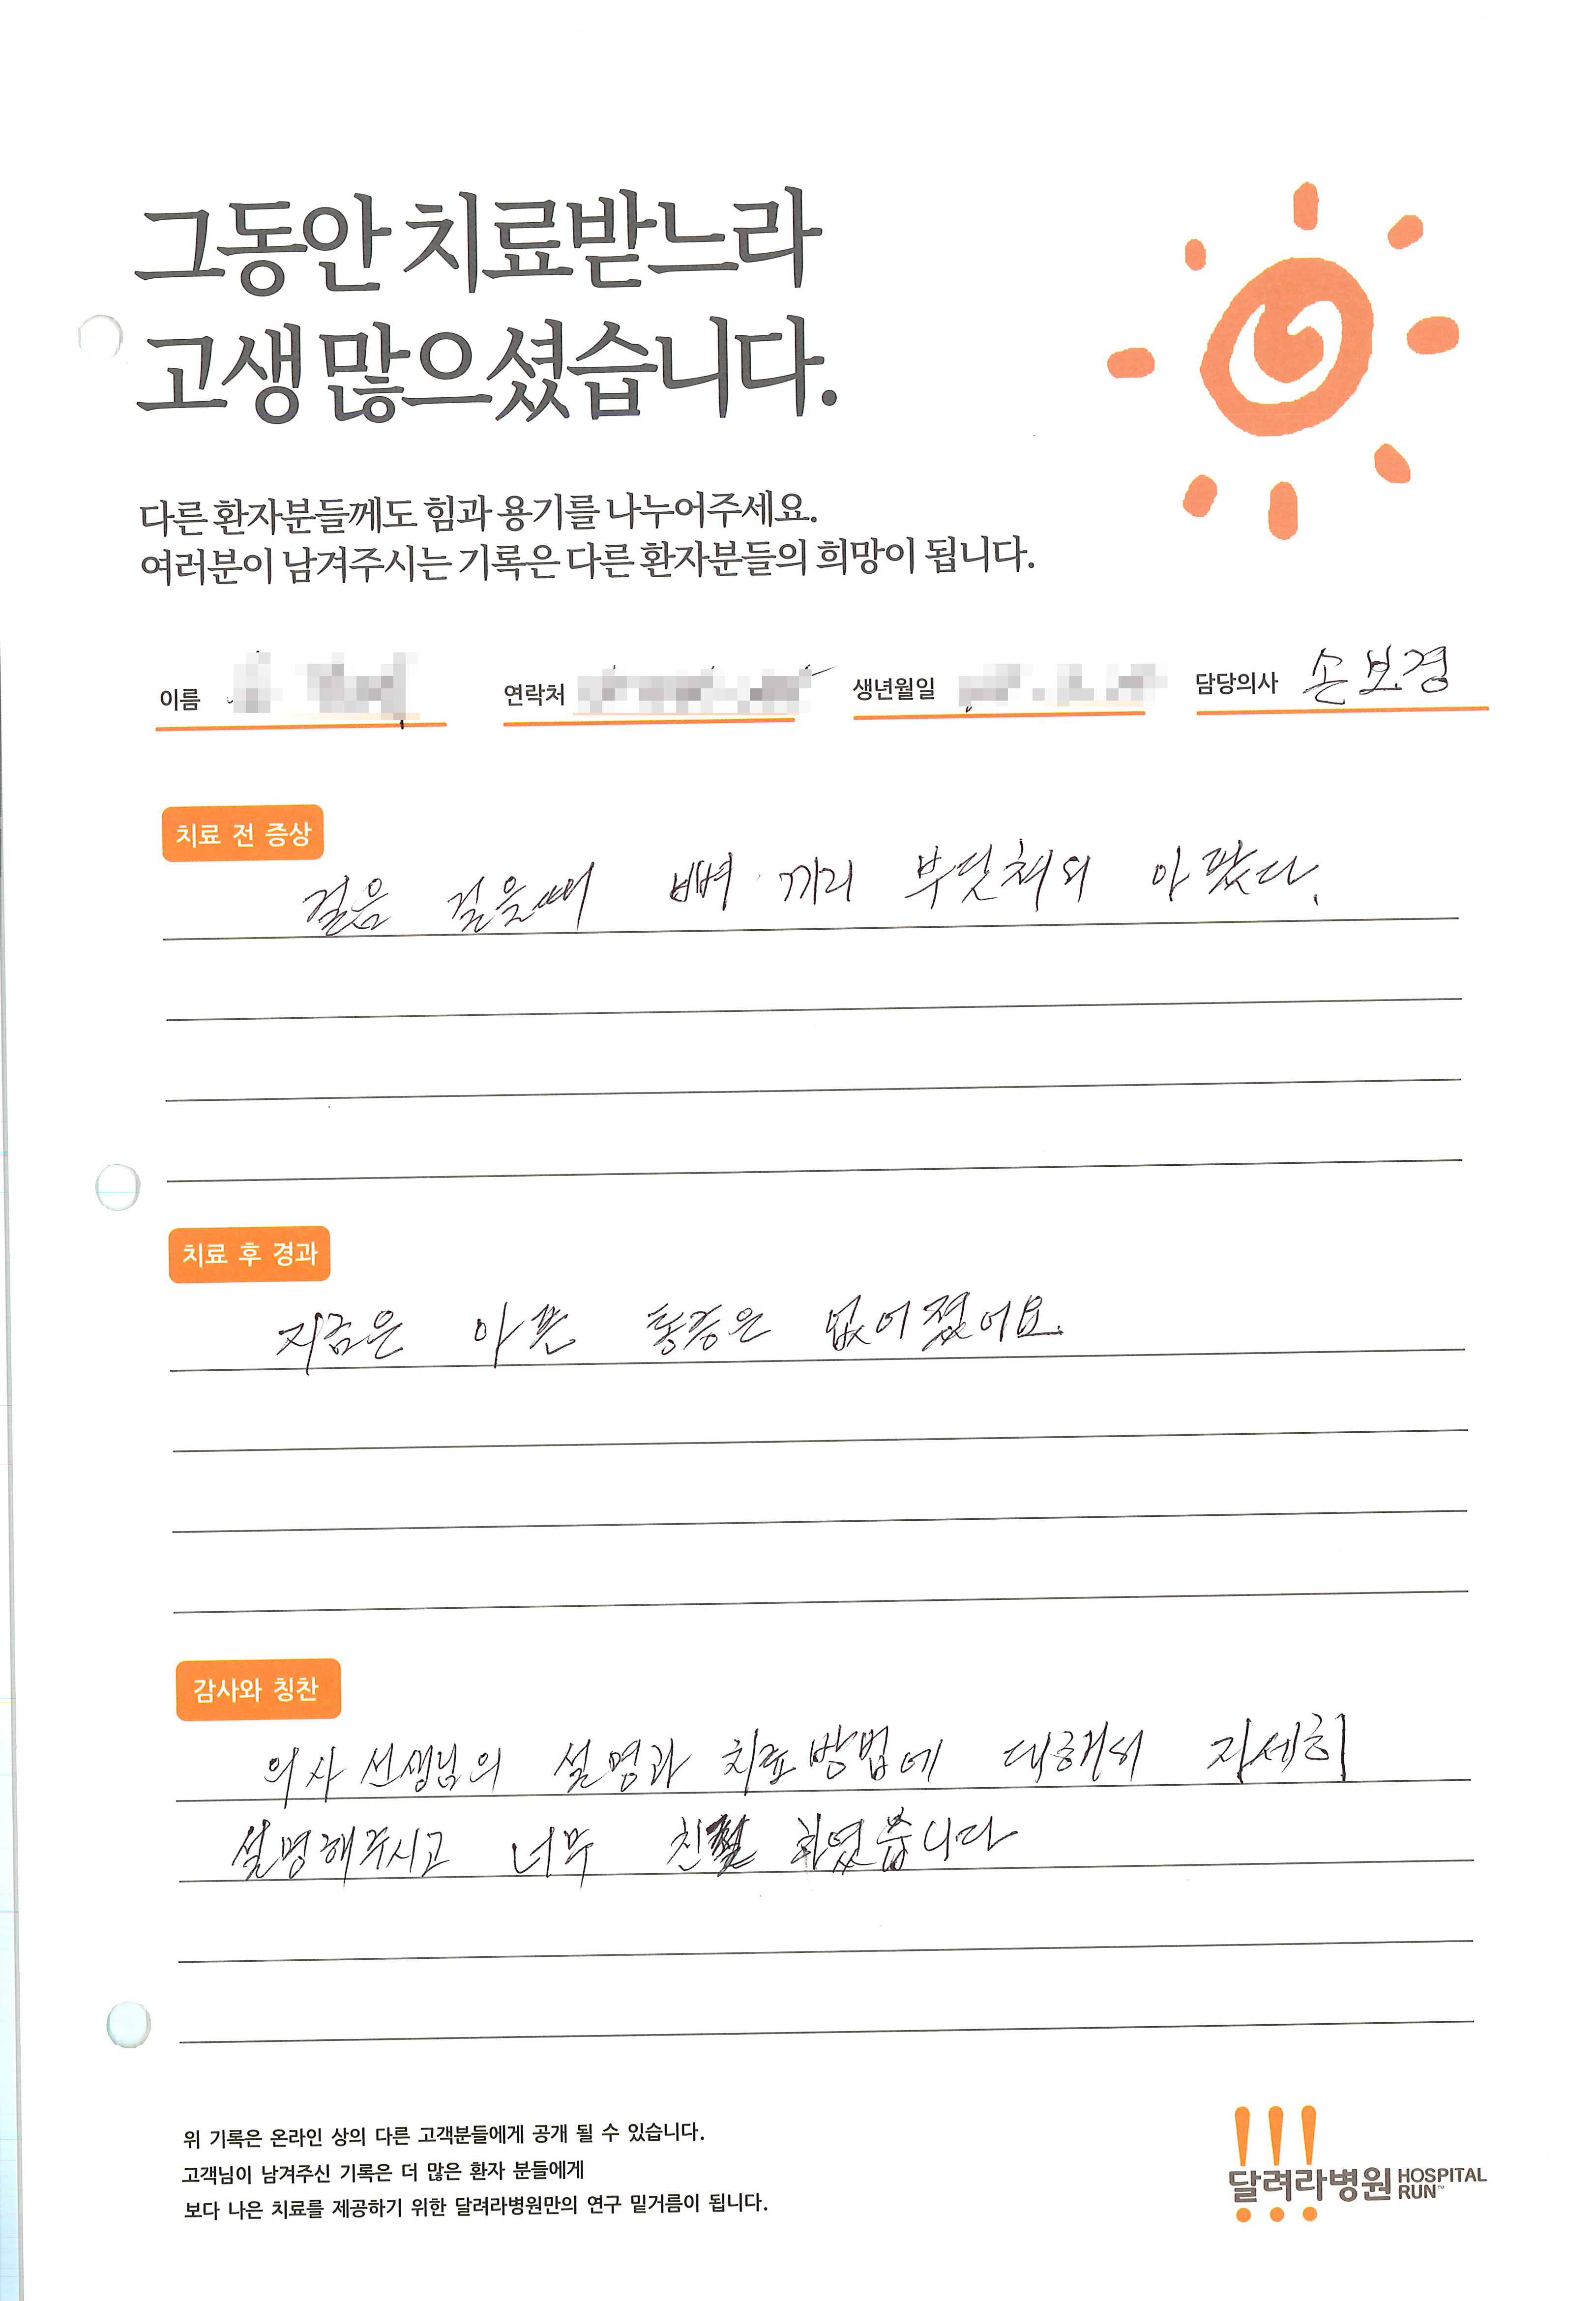 그동안 치료받느라
고생 많으셨습니다.
다른 환자분들께도 힘과 용기를 나누어주세요.
여러분이 남겨주시는 기록은 다른 환자분들의 희망이 됩니다.
이름 연락처 생년월일 담당의사 손보경
치료 전 증상
걸음 걸을때 뼈 끼리 아팠다.
치료 후 경과
지금은 아픈 통증은 없어졌어요.
감사와 칭찬
의사 선생님의 설명과 치료방법에 대해서 자세히
설명해주시고 너무 친절 하였습니다
위 기록은 온라인 상의 다른 고객분들에게 공개 될 수 있습니다.
고객님이 남겨주신 기록은 더 많은 환자 분들에게
보다 나은 치료를 제공하기 위한 달려라병원만의 연구 밑거름이 됩니다.
달려라병원 HOSPITAL
RUN™